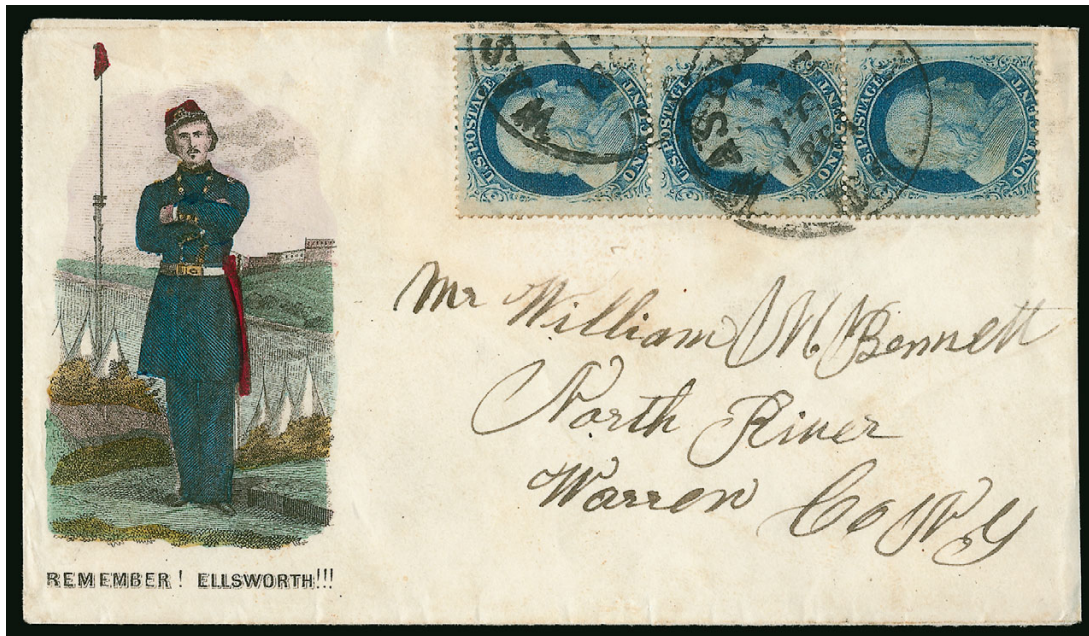 U.S. POSTAGE
ONE CENT
U.S. POSTAGE
ONE CENT
U.S. POSTAGE
ONE CENT
Mr William M. Bennett
North River
Warren Co N.Y
REMEMBER! ELLSWORTH!!!